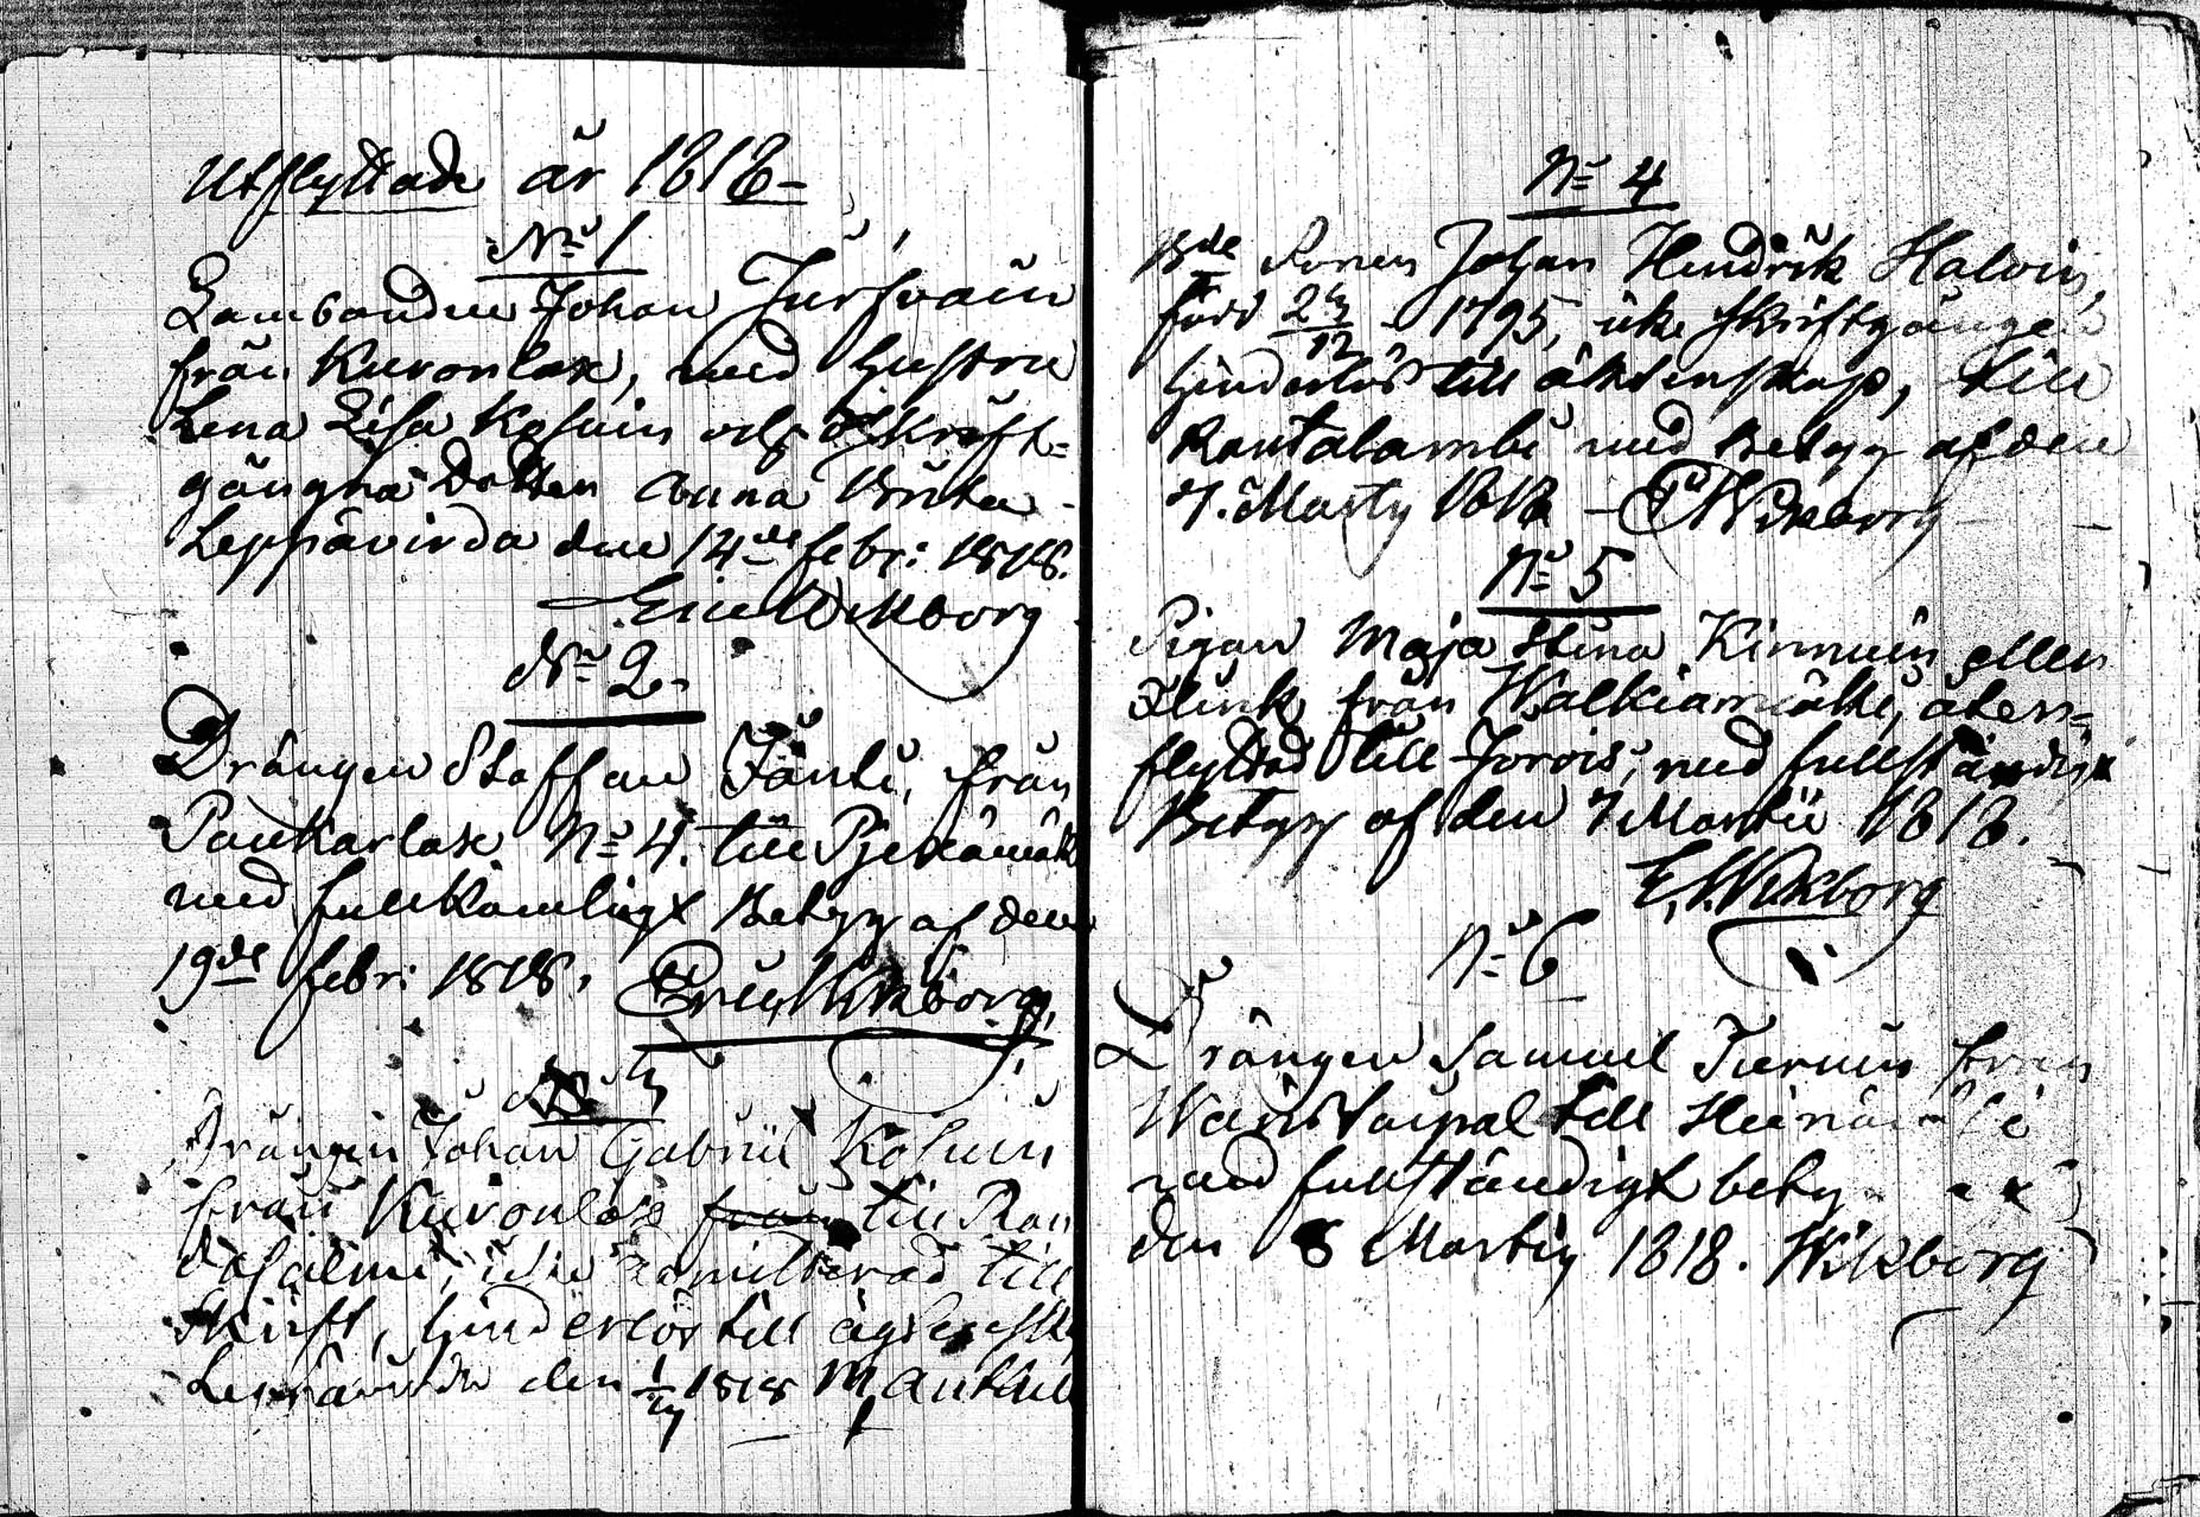 Utflyttade år 1818 –
No 1
Johan
från Kuronlax, med hustru
Lena Lisa Kosuin och oskrift=
gångna Dottren Anna Brita
Leppävirda den 14de febr: 1818.
Eric Wikborg
No 2.
Drängen Staffan Jänti, från
Paukarlax No 4. till Pjexämäk
med fullkomligt Betyg af den
19de febr: 1818. Eric Wikborg
No 3
Drängen Johan Gabriel Kosuin
från Kuronlax från till Ran
dasalmi, icke admitterad till
skrift, hinderlös till
den 1/3 1818
No 4
Bde Sonen Johan Hendrik Halvin,
född 23/12 1795, icke skriftgången
hinderlös till äktenskap, till
Rautalambi med Betyg af den
7. Marty 1818 – E Wikborg
No 5
Pigan Maja Stina Kinnuin eller
Flink från Walkiamäki, åter=
flyttad till Jorois, med fullständigt
Betyg af den 7 Martii 1818.
E. Wikborg
No 6
Drängen Samuel från
till
med fullständigt
den 8 Marty 1818. Wikborg